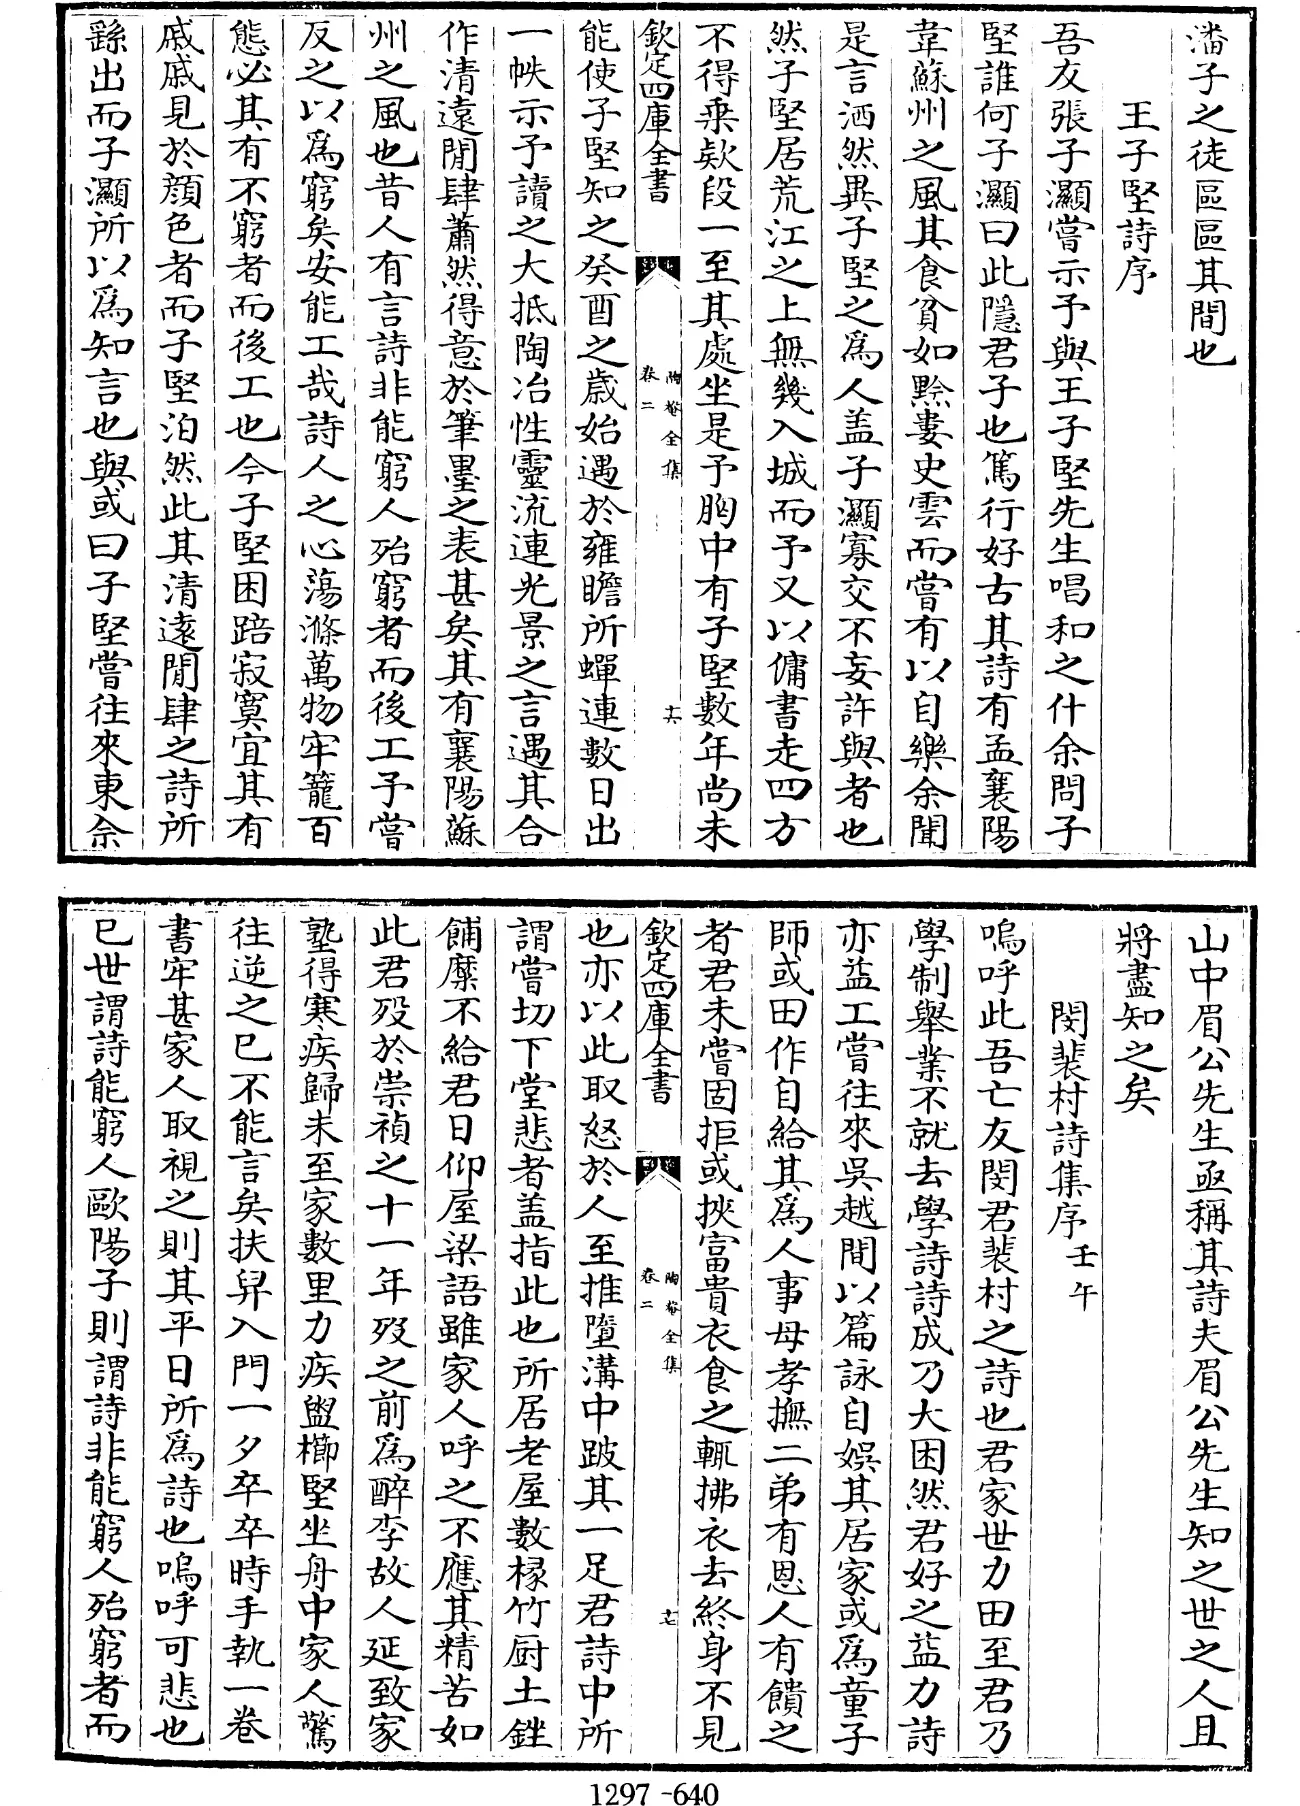 潘子之徒區區其間也
王子堅詩序
吾友張子灝嘗示予與王子堅先生唱和之什余問子
堅誰何子灝曰此隱君子也篤行好古其詩有孟襄陽
韋蘇州之風其食貧如黔婁史雲而嘗有以自樂余聞
是言洒然異子堅之為人盖子灝寡交不妄許與者也
然子堅居荒江之上無幾入城而予又以傭書走四方
不得乗欵段一至其處坐是予胸中有子堅數年尚未
欽定四庫全書
陶菴全集
卷二
十六
能使子堅知之癸酉之歳始遇於雍瞻所蟬連數日出
一帙示予讀之大抵陶冶性靈流連光景之言遇其合
作清遠閒肆蕭然得意於筆墨之表甚矣其有襄陽蘇
州之風也昔人有言詩非能窮人殆窮者而後工予嘗
反之以為窮矣安能工哉詩人之心蕩滌萬物牢籠百
態必其有不窮者而後工也今子堅困踣寂寞宜其有
戚戚見於顔色者而子堅泊然此其清遠閒肆之詩所
繇出而子灝所以為知言也與或曰子堅嘗往來東佘
山中眉公先生亟稱其詩夫眉公先生知之世之人且
將盡知之矣
閔裴村詩集序 壬午
嗚呼此吾亡友閔君裴村之詩也君家世力田至君乃
學制舉業不就去學詩詩成乃大困然君好之益力詩
亦益工嘗往來吳越間以篇詠自娱其居家或為童子
師或田作自給其為人事母孝撫二弟有恩人有饋之
者君未嘗固拒或挾富貴衣食之輒拂衣去終身不見
欽定四庫全書
陶菴全集
卷二
十七
也亦以此取怒於人至推墮溝中跛其一足君詩中所
謂嘗切下堂悲者盖指此也所居老屋數椽竹厨土銼
餔糜不給君日仰屋梁語雖家人呼之不應其精苦如
此君殁於崇禎之十一年殁之前為醉李故人延致家
塾得寒疾歸未至家數里力疾盥櫛堅坐舟中家人驚
往逆之已不能言矣扶舁入門一夕卒卒時手執一卷
書牢甚家人取視之則其平日所為詩也嗚呼可悲也
已世謂詩能窮人歐陽子則謂詩非能窮人殆窮者而
1297-640